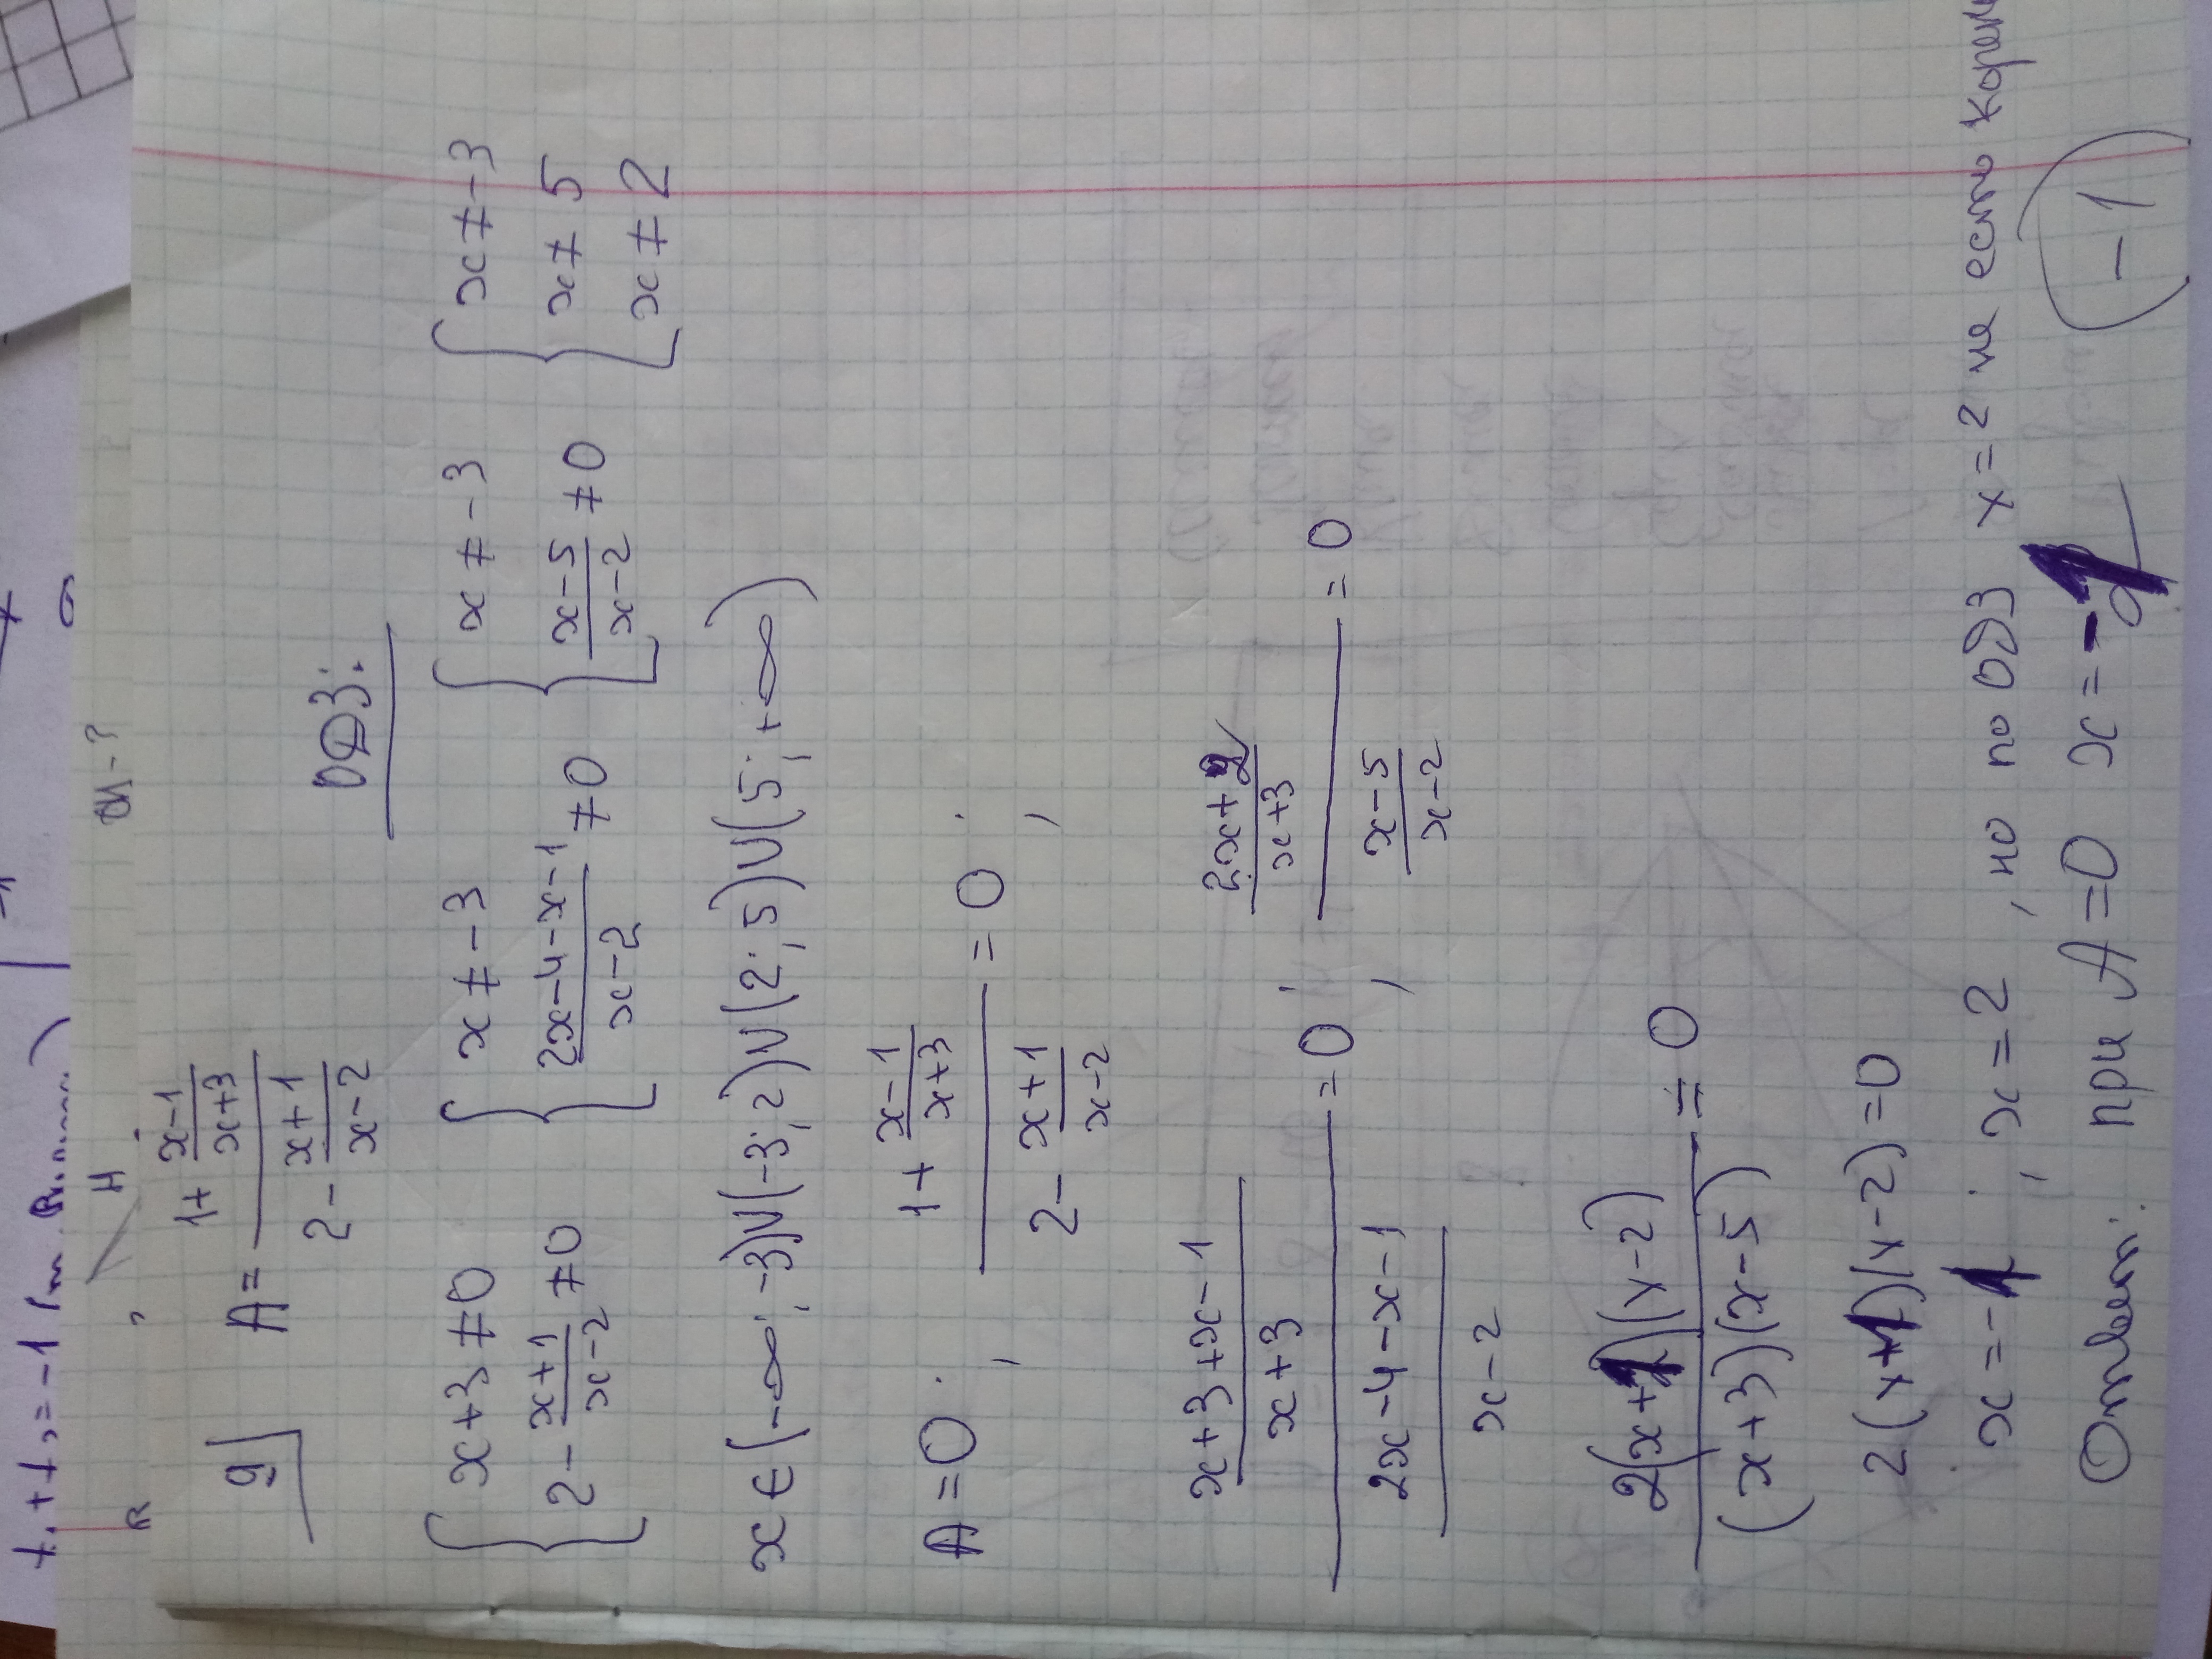 t₁+t₂=-1
H
R
9] A = (1+(x-1)/(x+3))/(2-(x+1)/(x-2))
ОДЗ:
{x+3≠0; 2-(x+1)/(x-2)≠0 {x≠-3; (2x-4-x-1)/(x-2)≠0 {x≠-3; (x-5)/(x-2)≠0 {x≠-3; x≠5; x≠2
x∈(-∞;-3)∪(-3;2)∪(2;5)∪(5;+∞)
A=0; (1+(x-1)/(x+3))/(2-(x+1)/(x-2))=0;
((x+3+x-1)/(x+3))/((2x-4-x-1)/(x-2))=0; ((2x+2)/(x+3))/((x-5)/(x-2))=0
2(x+1)(x-2)/((x+3)(x-5))=0
2(x+1)(x-2)=0
x=-1; x=2, но по ОДЗ x=2 не есть корен
Ответ: при A=0 x=-1 (-1)